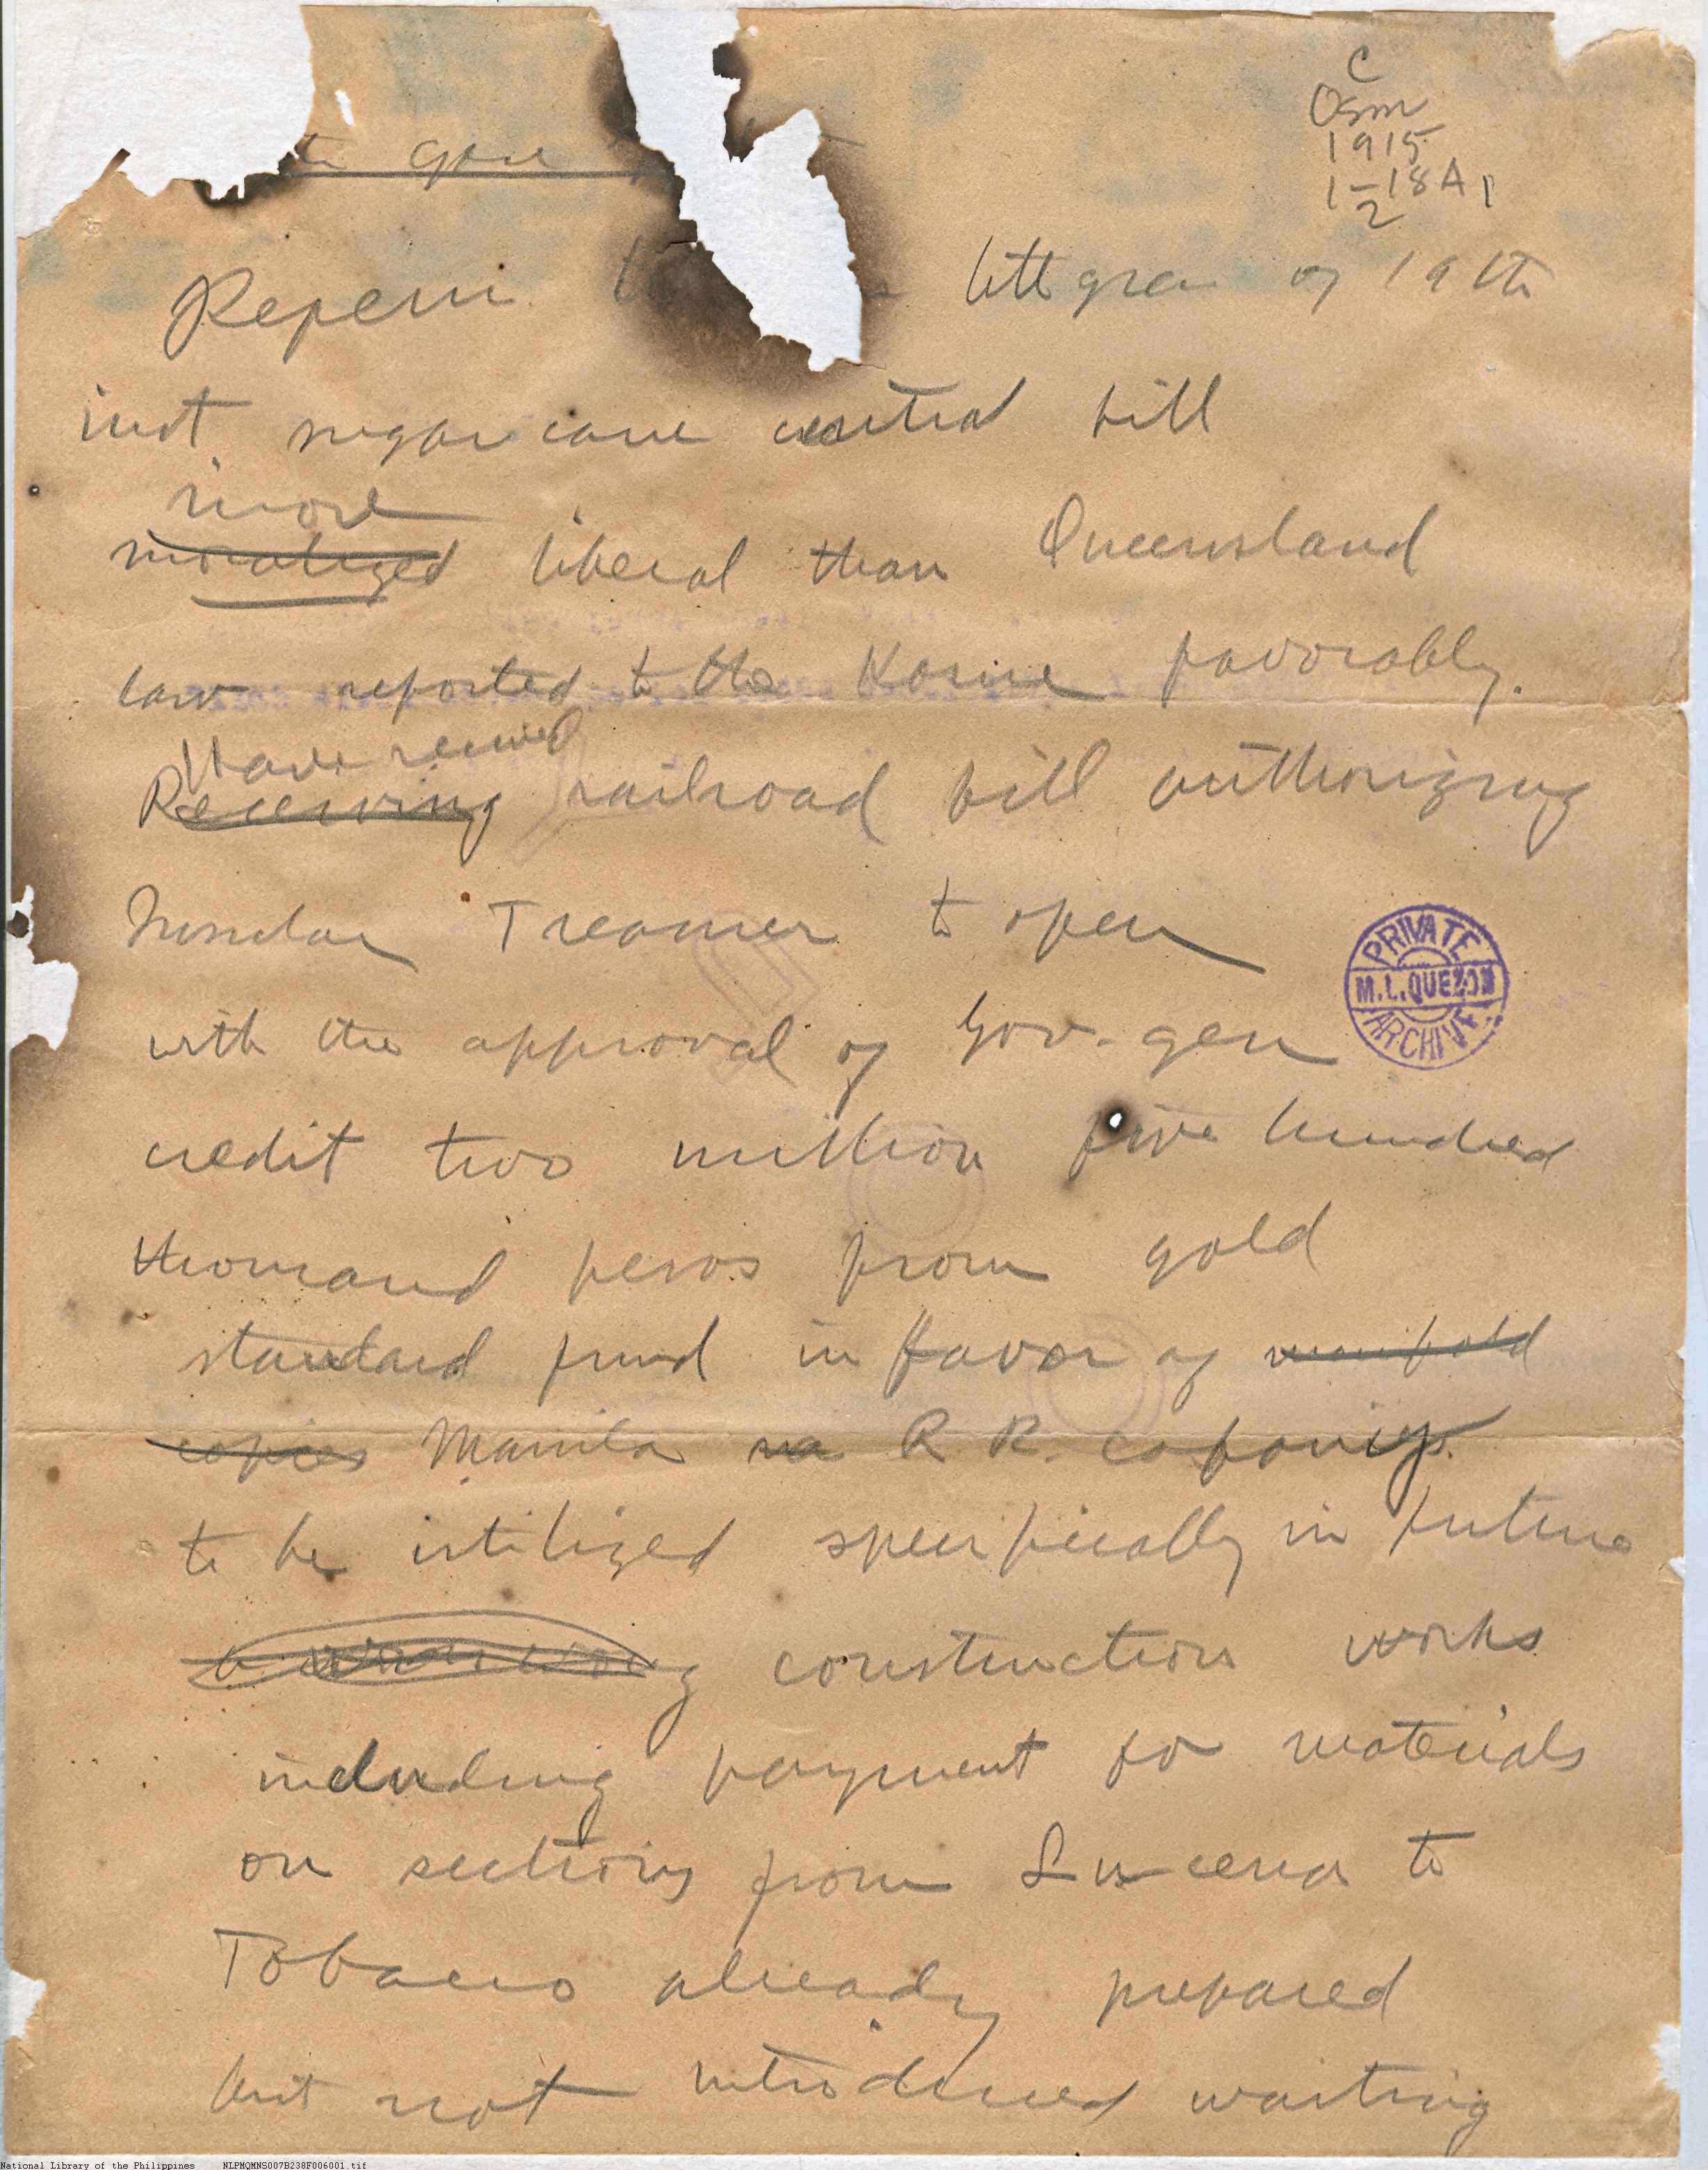 C
Osm
1915
1-18A1
2
to gove
letegram of 19th
inst sugar cane central bill
more
liberal than Queensland
law reported to the House favorably.
Have received
Receiving railroad bill authorizing
Insular Treasurer to open
with the approval of Gov. gen
credit two million five hundred
thousand pesos from gold
standard fund in favor of manifold
copies Manila R R. company
to be utilized specifically in future
construction works
including payment for materials
on sections from Lucena to
Tobacco already prepared
but not introduced waiting
PRIVATE
M.L.QUEZON
ARCHIVE
National Library of the Philippines NLPMQMNS007B238F006001.tif